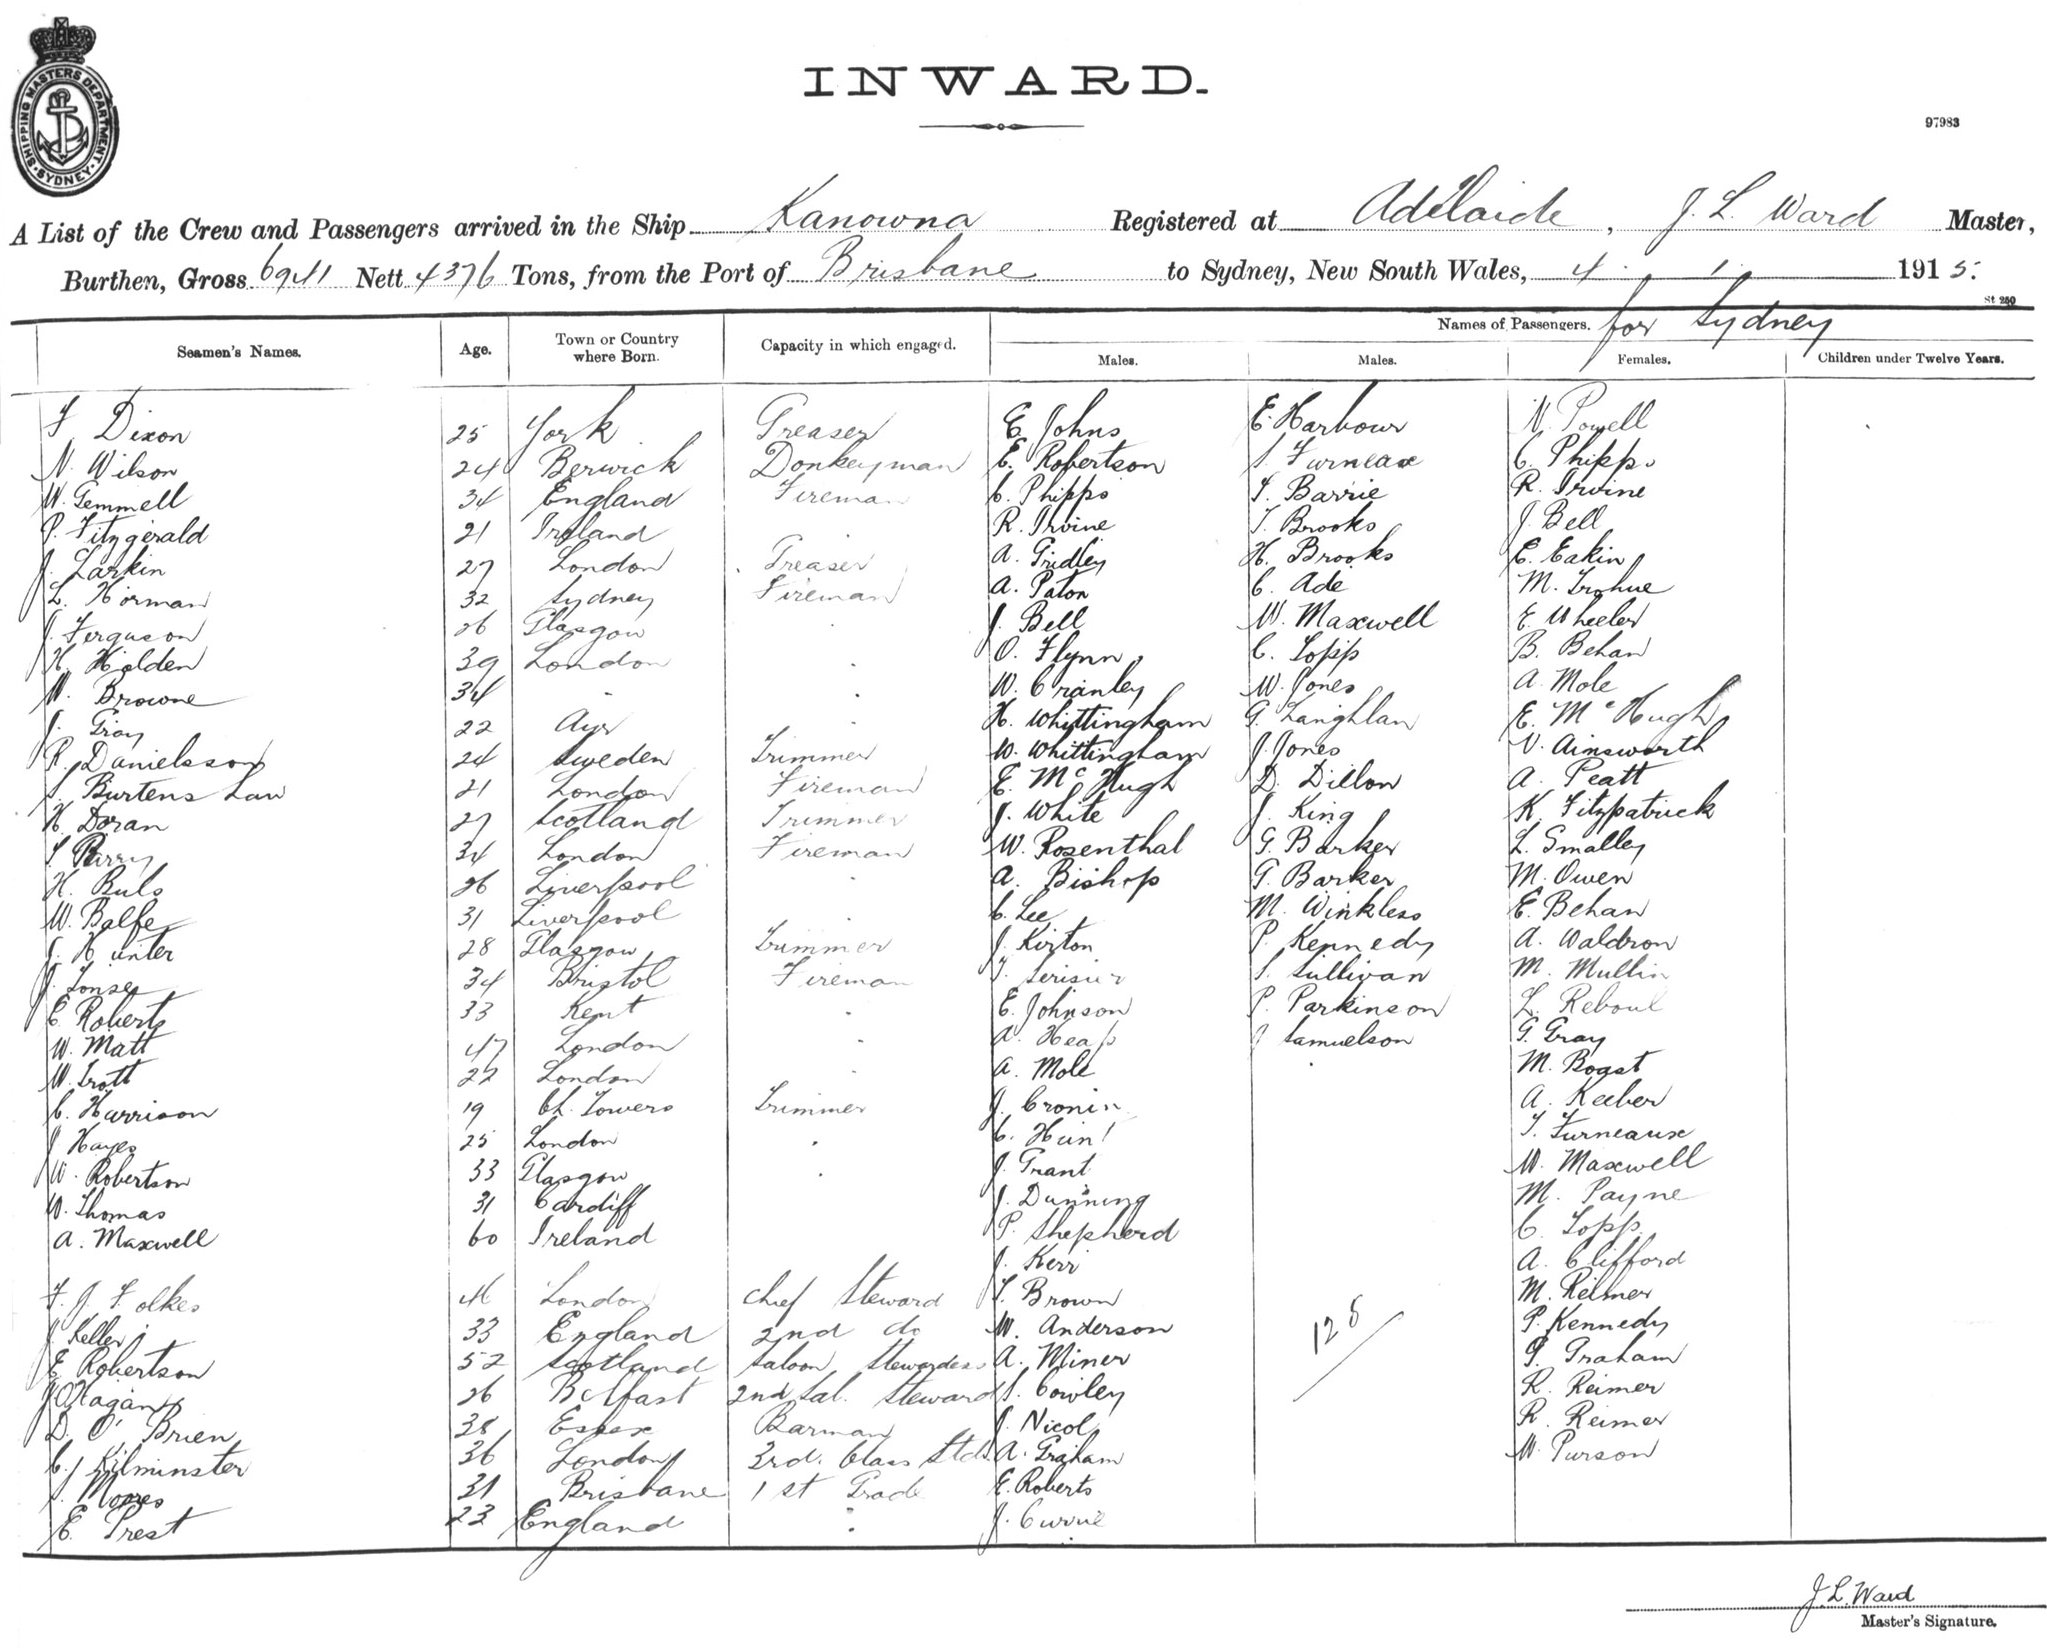 INWARD.
SHIPPING MASTERS DEPARTMENT
SYDNEY
97983
A List of the Crew and Passengers arrived in the Ship Kanowna Registered at Adelaide, J. L. Ward Master,
Burthen, Gross 6941 Nett 4376 Tons, from the Port of Brisbane to Sydney, New South Wales, 4. 1. 1915.
St 250
Names of Passengers. for Sydney
Seamen's Names. Age. Town or Country where Born. Capacity in which engaged. Males. Males. Females. Children under Twelve Years.
F Dixon 25 York Greaser E. Johns E. Harbour N. Powell
N. Wilson 24 Berwick Donkeyman E. Robertson S. Furneax C. Phipps
W. Gemmell 34 England Fireman C. Phipps T. Barrie R. Irvine
P. Fitzgerald 21 Ireland " R. Irvine T. Brooks J. Bell
J. Larkin 27 London Greaser A. Gridley H. Brooks E. Eakin
L. Norman 32 Sydney Fireman A. Paton C. Ade M.
J. Ferguson 26 Glasgow " J. Bell W. Maxwell E. Wheeler
H. Holden 39 London " O. Flynn C. Topp B. Behan
W. Browne 34 " " W. Cranley W. Jones A. Mole
J. Gray 22 Ayr " H. Whittingham G. Langhlan E. McHugh
R. Danielsson 24 Sweden Trimmer W. Whittingham J. Jones V. Ainsworth
S. Burtenshaw 21 London Fireman E. McHugh D. Dillon A. Peatt
H. Doran 27 Scotland Trimmer J. White J. King K. Fitzpatrick
Parry 34 London Fireman W. Rosenthal G. Barker L. Smalley
H. Buls 26 Liverpool " A. Bishop G. Barker M. Owen
W. Balfe 31 Liverpool " C. Lee M. Winkless E. Behan
J. Hunter 28 Glasgow Trimmer J. Kirton P. Kennedy A. Waldron
J. 34 Bristol Fireman T. Serisier S. Sullivan M. Mullin
E. Roberts 33 Kent " E. Johnson P. Parkinson L. Reboul
W. Matt 47 London " A. Heap J Samuelson G. Gray
W. Trott 22 London " A. Mole M. Boast
C. Harrison 19 Ch. Towers Trimmer J. Cronin A. Keeber
J Hayes 25 London " C. Hunt T. Furneaux
W. Robertson 33 Glasgow " J. Grant W. Maxwell
W. Thomas 31 Cardiff J. Dunning M. Payne
A. Maxwell 60 Ireland P. Shepherd C. Topp
J. Kerr A. Clifford
F. J. Folkes 46 London Chief Steward T. Brown M. Reimer
J. Keller 33 England 2nd do W. Anderson P. Kennedy
E Robertson 52 Scotland Saloon Stewardess A. Miner Graham
J O'Hagan 26 Belfast 2nd Sal. Steward S. Cowley R. Reimer
D. O'Brien 38 Essex Barman J. Nicol R. Reimer
C. J Kilminster 36 London 3rd. Class Std. A. Graham W. Purson
Moores 31 Brisbane 1st Grade E. Roberts
E. Prest 23 England " J. Currie
128
J. L. Ward
Master's Signature.